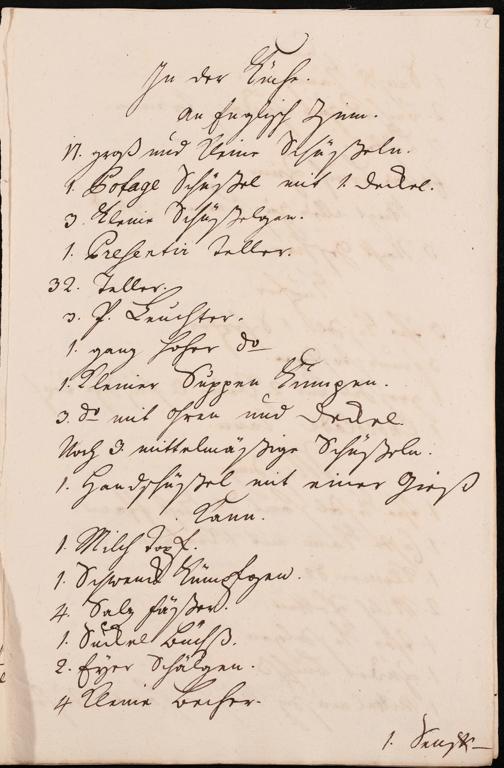 In der Küche.
an Englisch Zinn.
11. groß und kleine Schüßeln.
1. Potage Schüßel mit 1. Deckel.
3. kleine Schüßelgen.
1. Presentir Teller.
32. Teller.
3. P. Leuchter.
1. ganz hoher do
1. kleiner Suppen Kumpen.
3. do mit ohren und Deckel
Noch 3. mittelmäßige Schüßeln.
1. Handschüßel mit einer Gieß
Kann.
1. Milch Topf.
1. Schwenck Kümpfgen.
4. Salz fäßer.
1. Büchß.
2. Eyer Schälgen.
4 kleine Becher.
1. Senft